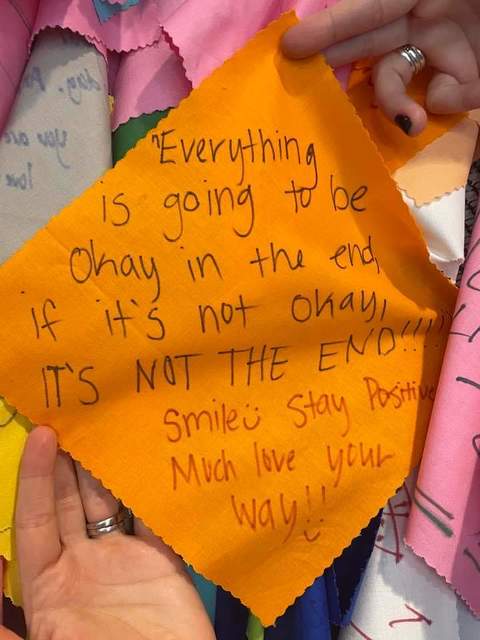 "Everything
is going to be
Okay in the end,
if it's not okay,
IT'S NOT THE END!!!!
Smile Stay Positive
Much love your
way!!
day.
you are
love